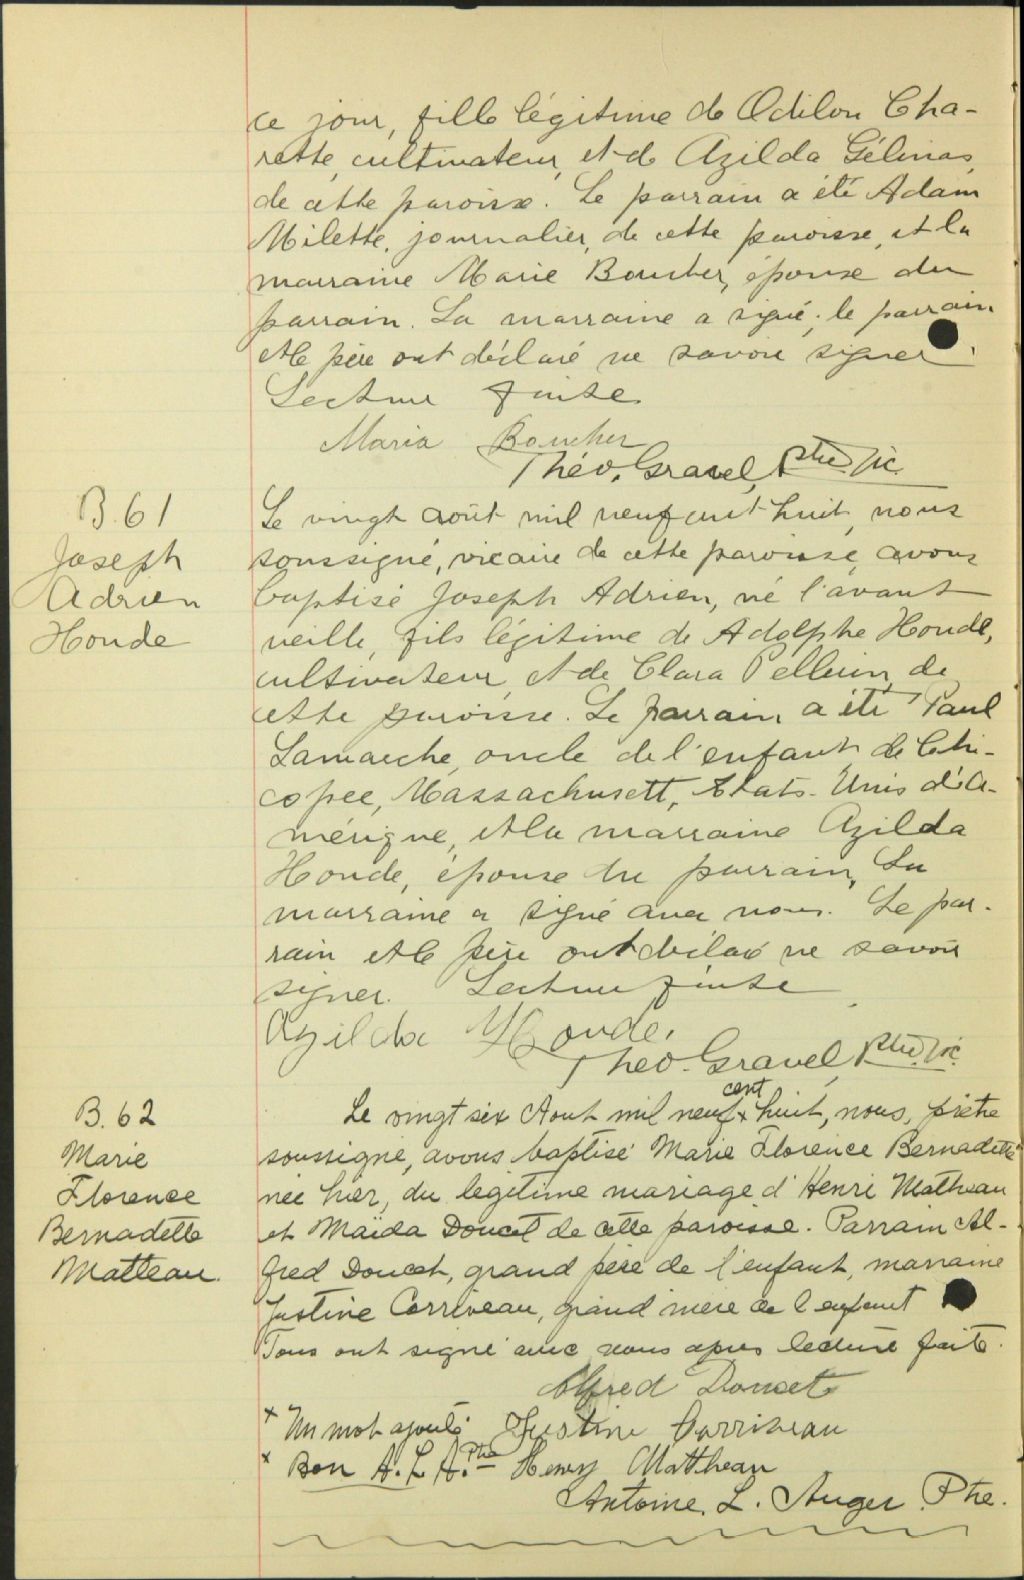 ce jour, fille légitime de Odilon Cha-
rette, cultivateur, et de Azilda Gélinas,
de cette paroisse. Le parrain a été Adam
Milette, journalier, de cette paroisse, et la
marraine Marie Boucher, épouse du
parrain. La marraine a signé; le parrain
et le père ont déclaré ne savoir signer.
Lecture faite
Maria Boucher
Théo. Gravel, Ptre Vic.
B. 61
Joseph
Adrien
Houde
Le vingt août mil neuf cent huit, nous
soussigné, vicaire de cette paroisse, avons
baptisé Joseph Adrien, né l'avant
veille, fils légitime de Adolphe Houde,
cultivateur, et de Clara Pellerin, de
cette paroisse. Le parrain a été Paul
Lamarche, oncle de l'enfant, de Chi-
copee, Massachusett, Etats-Unis d'A-
mérique, et la marraine Azilda
Houde, épouse du parrain, La
marraine a signé avec nous. Le par-
rain et le père ont déclaré ne savoir
signer. Lecture faite
Azilda Houde.
Theo. Gravel, Ptre. Vic.
B. 62
Marie
Florence
Bernadette
Matteau.
Le vingt six Aout mil neuf x cent huit, nous, prêtre
soussigné, avons baptisé Marie Florence Bernadette
née hier, du légitime mariage d'Henri Mattheau
et Maïda Doucet de cette paroisse. Parrain Al-
fred Doucet, grand père de l'enfant, marraine
Justine Corriveau, grand'mère de l'enfant
Tous ont signé avec nous après lecture faite.
Alfred Doucet
x Un mot ajouté Justine Corriveau
x Bon A. L. A. Ptre Henry Mattheau
Antoine. L. Auger Ptre.